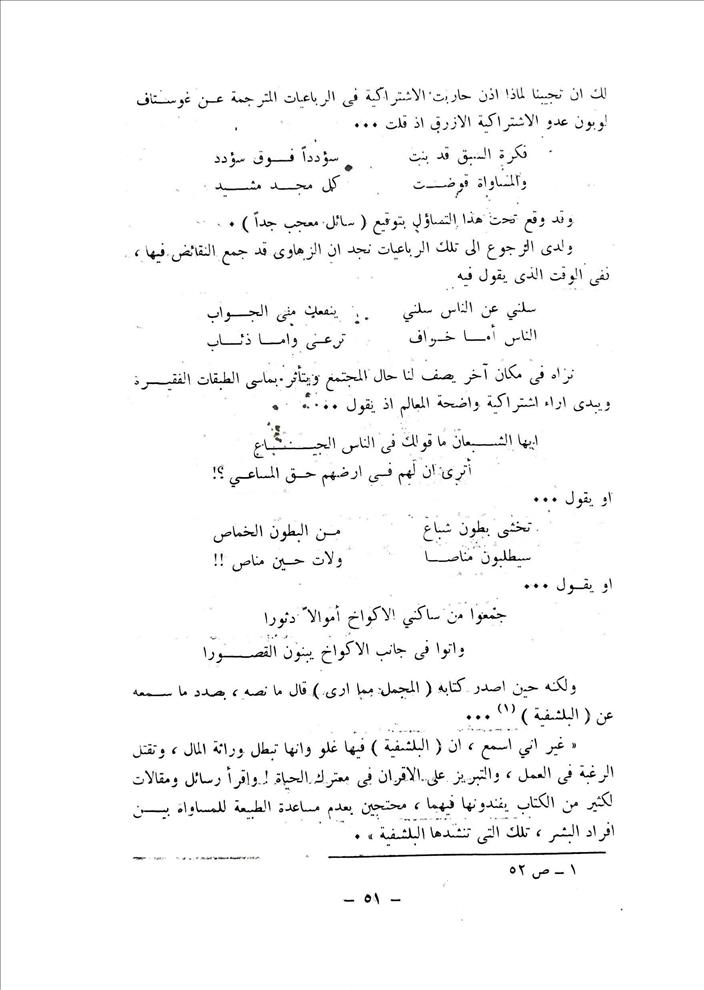 لك ان تجيبنا لماذا اذن حاربت الاشتراكية فى الرباعيات المترجمة عن غوستاف
لوبون عدو الاشتراكية الازرق اذ قلت ...
فكرة السبق قد بنت سؤدداً فوق سؤدد
والمساواة قوضت كل مجد مشيد
وقد وقع تحت هذا التساؤل بتوقيع ( سائل معجب جداً ) .
ولدى الرجوع الى تلك الرباعيات نجد ان الزهاوى قد جمع النقائض فيها ،
نفى الوقت الذى يقول فيه
سلني عن الناس سلني ينفعك منى الجواب
الناس أما خراف ترعى وأما ذئاب
نراه فى مكان آخر يصف لنا حال المجتمع ويتأثر بمآسى الطبقات الفقيرة
ويبدى اراء اشتراكية واضحة المعالم اذ يقول ...
ايها الشبعان ما قولك فى الناس الجياع
أترى ان لهم فى ارضهم حق المساعي ؟!
او يقول ...
تخشى بطون شباع من البطون الخماص
سيطلبون مناصا ولات حين مناص !!
او يقول ...
جمعوا من ساكني الاكواخ أموالاً دثورا
واتوا فى جانب الاكواخ يبنون القصورا
ولكنه حين اصدر كتابه ( المجمل مما ارى ) قال ما نصه ، بصدد ما سمعه
عن ( البلشفية ) (١) ...
« غير اني اسمع ، ان ( البلشفية ) فيها غلو وانها تبطل وراثة المال ، وتقتل
الرغبة فى العمل ، والتبريز على الاقران فى معترك الحياة ! واقرأ رسائل ومقالات
لكثير من الكتاب يفندونها فيهما ، محتجين بعدم مساعدة الطبيعة للمساواة بين
افراد البشر ، تلك التى تنشدها البلشفية » .
١ – ص ٥٢
– ٥١ –